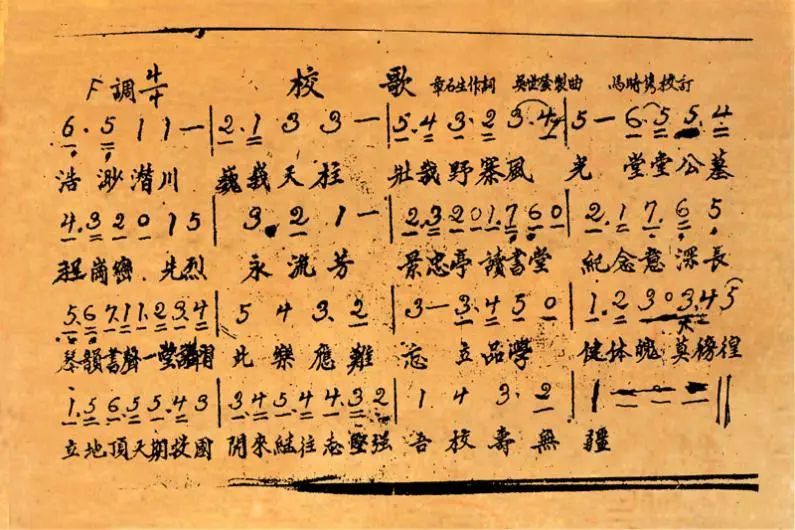 F調 4/4 校 歌 章石生作詞 吳世蓥製曲 馬時雋校訂
6. 5 1 1 — | 2. 1 3 3 — | 5. 4 3. 2 3. 4 | 5 — 6. 5 5. 4
浩渺潛川 巍峩天柱 壯哉野寨風光 堂堂公墓
4. 3 2 0 1 5 | 3. 2 1 — | 2. 3 2 0 1. 7 6 0 | 2. 1 7. 6 5
崗巒 先烈 永流芳 景忠亭讀書堂 紀念意深長
5. 6 7. 1 1. 2 3. 4 | 5 4 3. 2 | 3 — 3. 4 5 0 | 1. 2 3 0 3. 4 5
琴韻書聲一堂講習 此樂應難忘 立品學 健体魄莫徬徨
1. 5 6. 5 5. 4 3 | 3. 4 5. 4 4. 3 2 | 1 4 3. 2 | 1 — — — ||
立地頂天期技國 開來繼往志堅强 吾校壽無疆